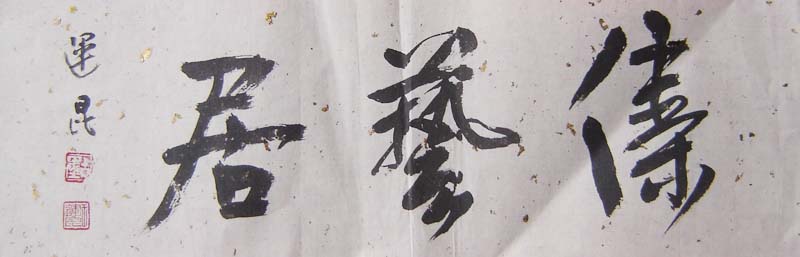 傣藝居
運昆